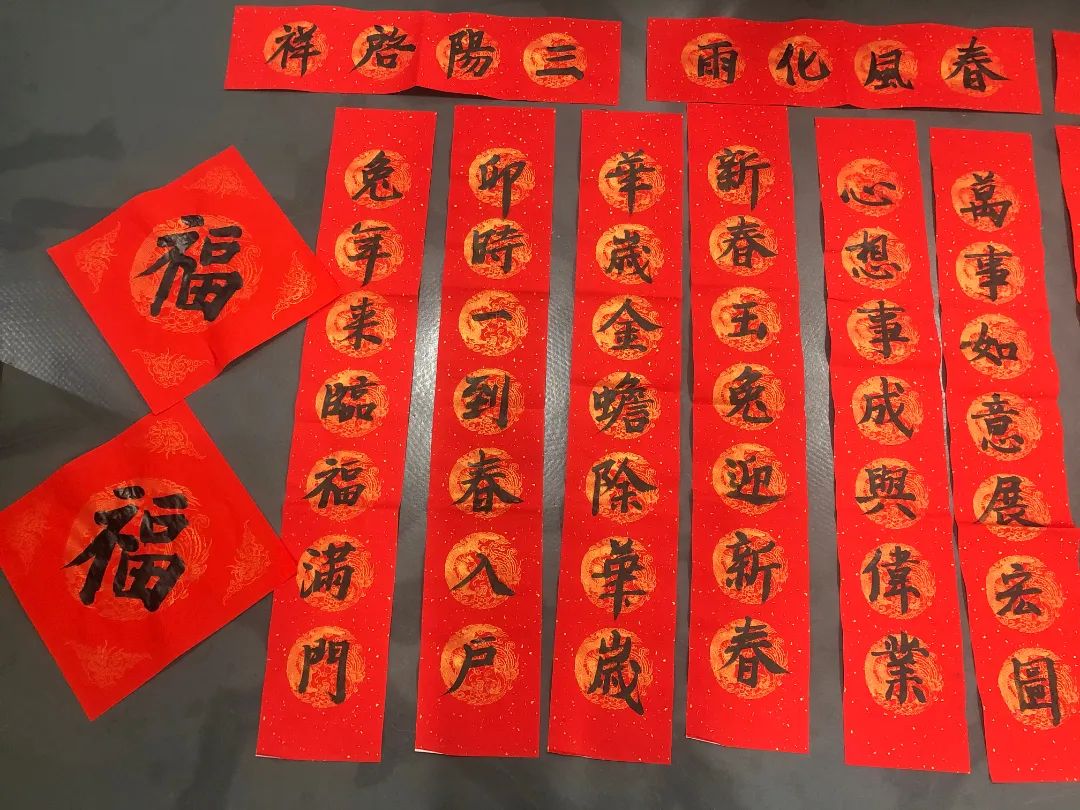 春風化雨
三陽啓祥
萬事如意展宏圖
心想事成興偉業
新春玉兔迎新春
華歲金蟾除華歲
卯時一到春入戶
兔年来臨福滿門
福
福